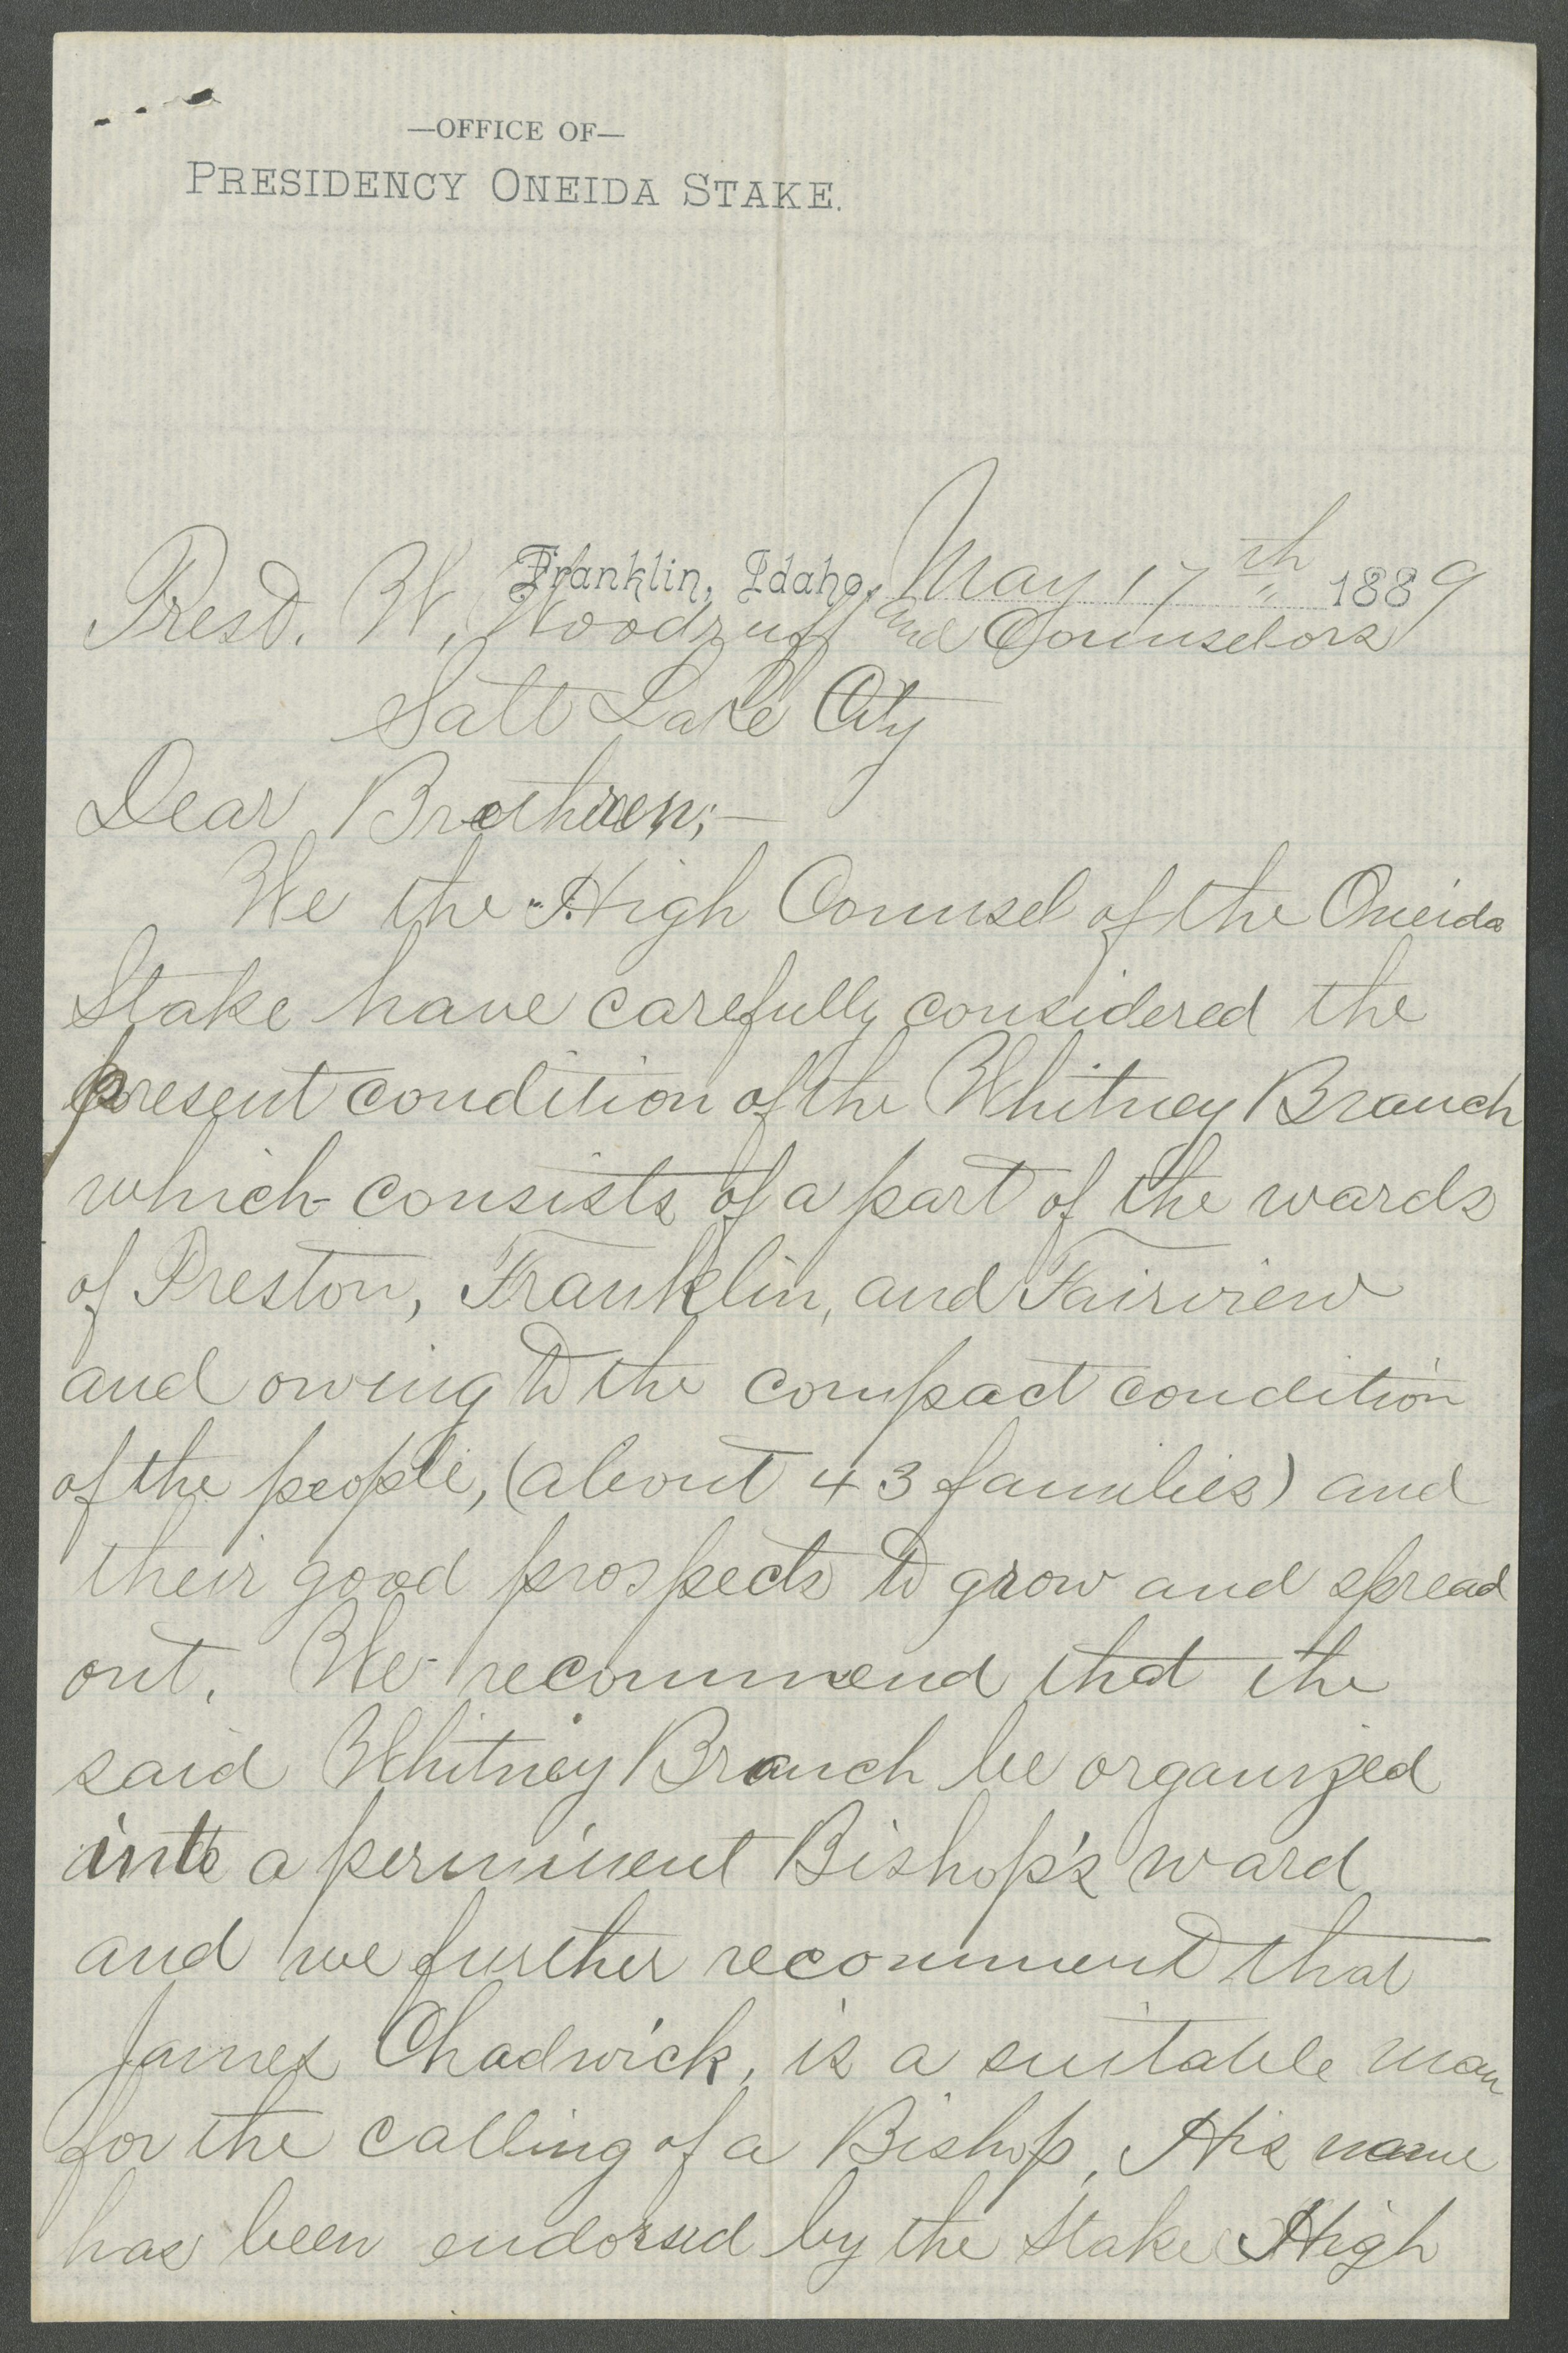 —OFFICE OF—
PRESIDENCY ONEIDA STAKE.
Franklin, Idaho, May 17th 1889
Prest. W. Woodruff and Counselors
Salt Lake City
Dear Brethren;—
We the High Counsel of the Oneida
Stake have carefully considered the
present condition of the Whitney Branch
which consists of a part of the wards
of Preston, Franklin, and Fairview
and owing to the compact condition
of the people, (about 43 families) and
their good prospects to grow and spread
out. We recommend that the
said Whitney Branch be organized
into a perminent Bishop's ward
and we further recomment that
James Chadwick, is a suitable man
for the calling of a Bishop, His name
has been endorsed by the Stake High